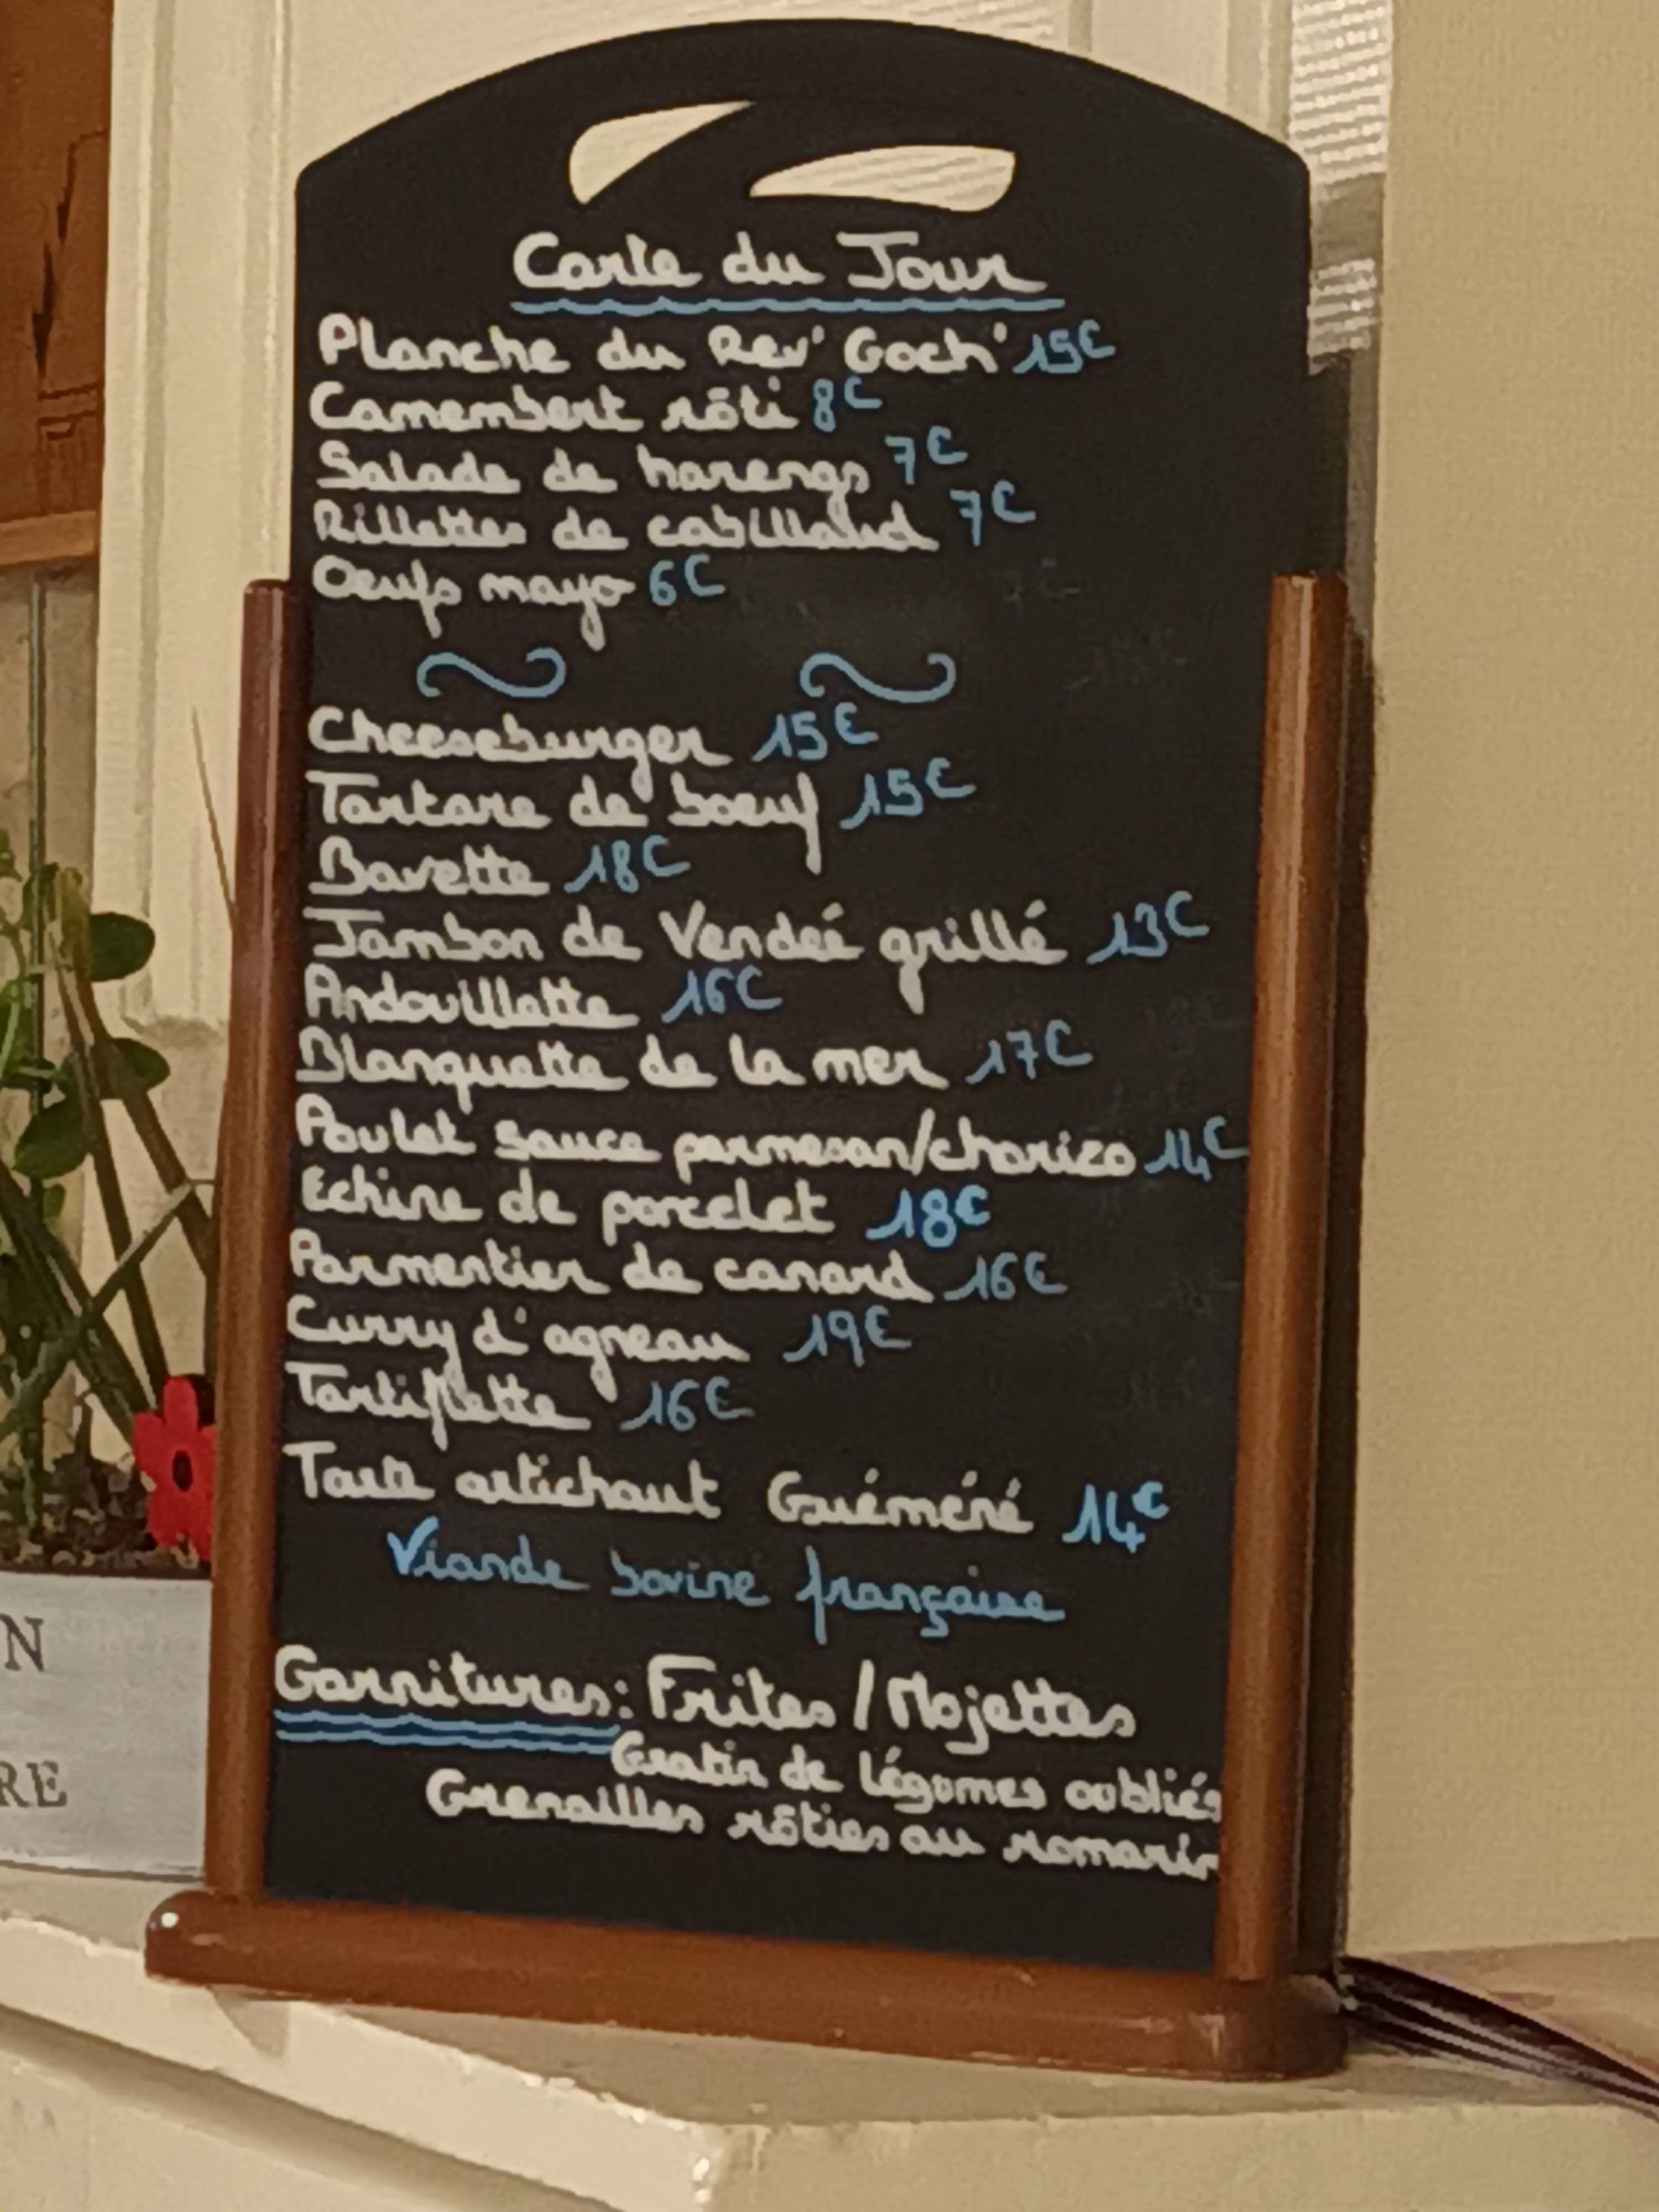 Carte du Jour
Planche du Rev' Goch' 15€
Camembert rôti 8€
Salade de harengs 7€
Rillettes de cabillaud 7€
Oeufs mayo 6€
Cheeseburger 15€
Tartare de boeuf 15€
Bavette 18€
Jambon de Vendeé grillé 13€
Andouillette 16€
Blanquette de la mer 17€
Poulet sauce parmesan/chorizo 14€
Echine de porcelet 18€
Parmentier de canard 16€
Curry d'agneau 19€
Tartiflette 16€
Tarte artichaut Guéméné 14€
Viande bovine française
Garnitures: Frites / Mojettes
Gratin de légumes oubliés
Grenailles rôties au romarin
N
RE